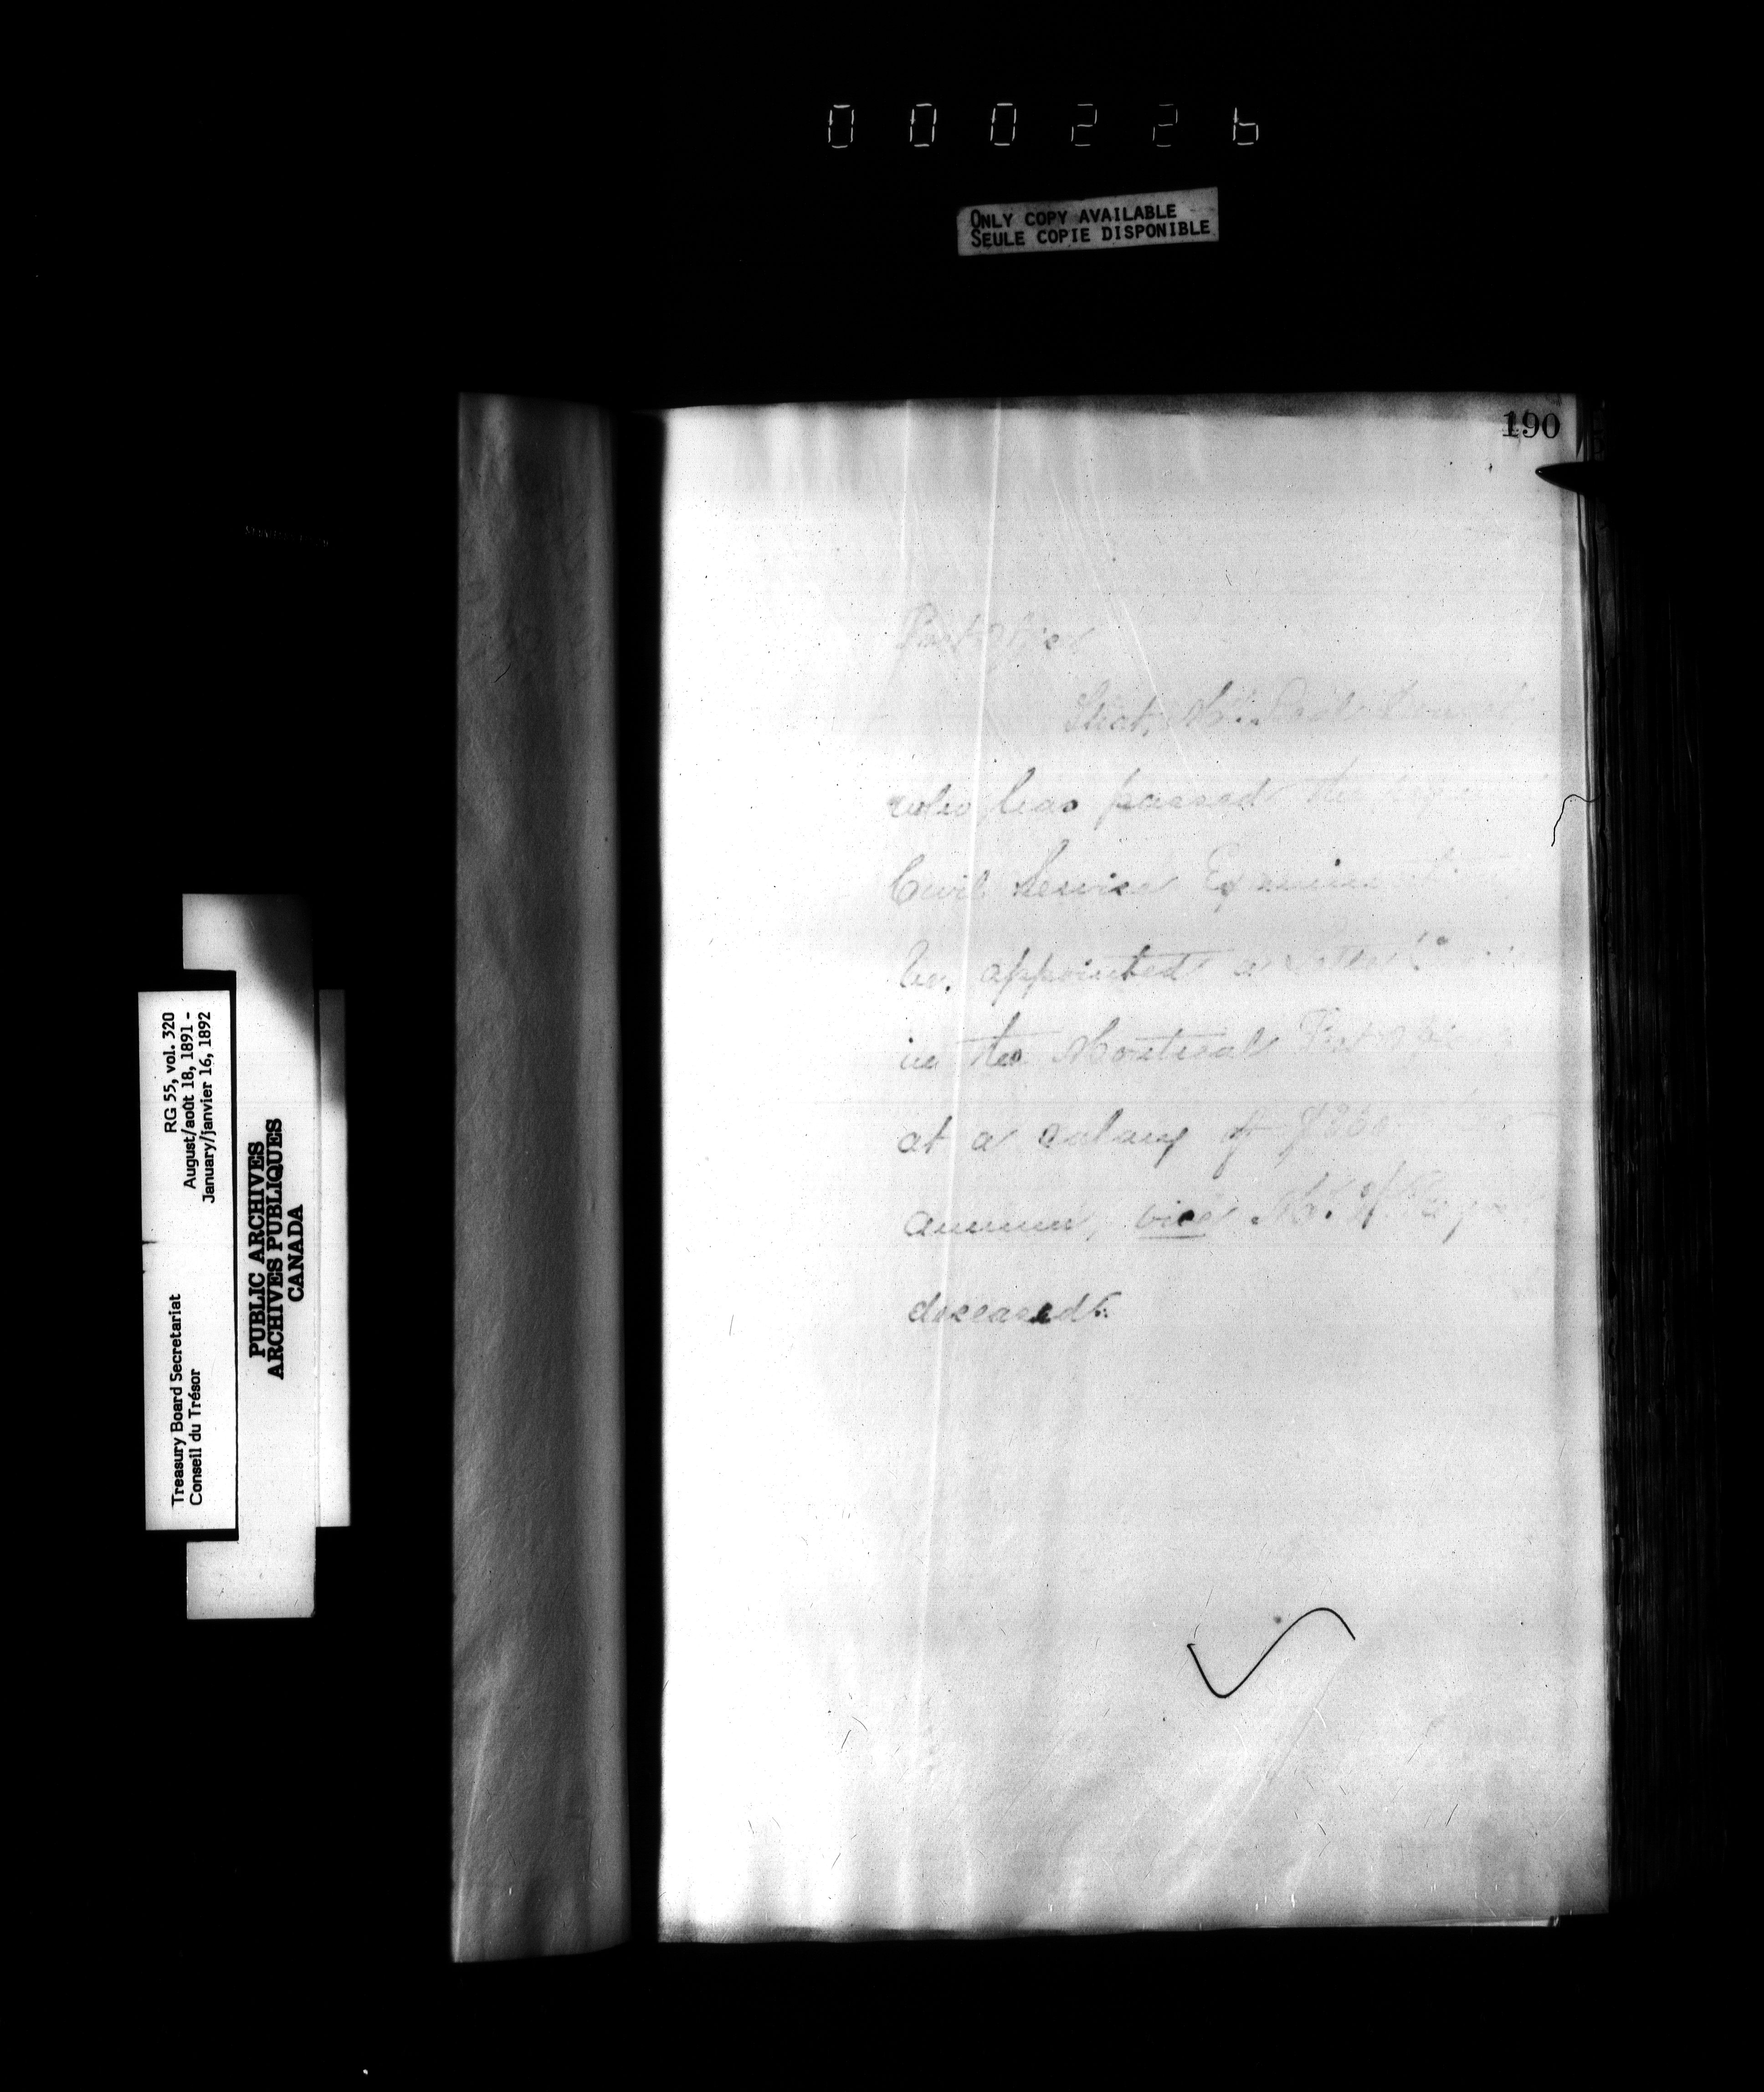 000226
ONLY COPY AVAILABLE
SEULE COPIE DISPONIBLE
190
Post Office
That, Mr.
who has passed the
Civil Service Examination
be, appointed a Letter Carrier
in the Montreal Post Office
at a salary of $360 per
annum, vice Mr.
deceased.
RG 55, vol. 320
August/août 18, 1891 -
January/janvier 16, 1892
Treasury Board Secretariat
Conseil du Trésor
PUBLIC ARCHIVES
ARCHIVES PUBLIQUES
CANADA